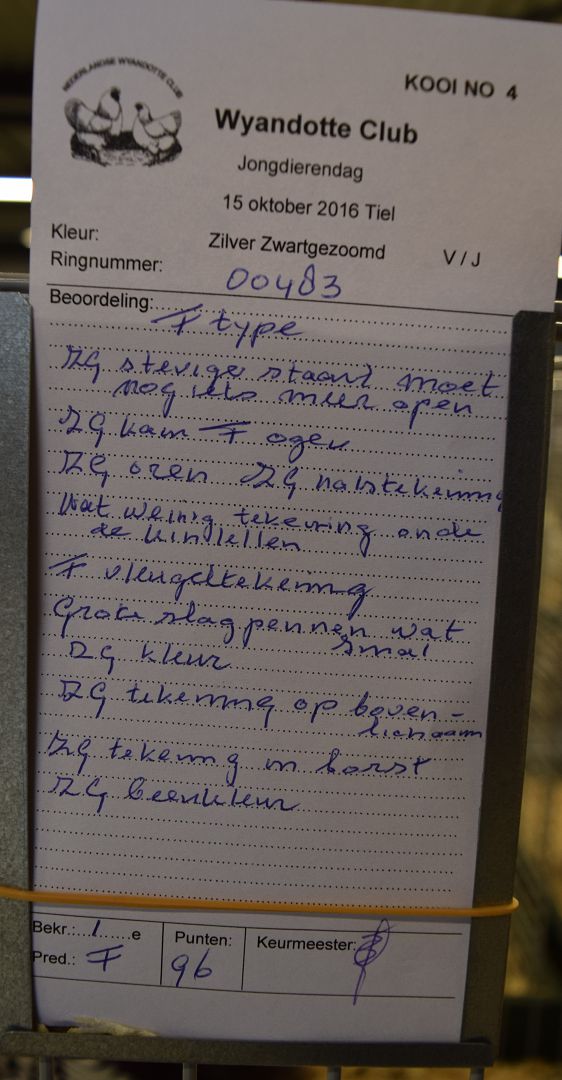 NEDERLANDSE WYANDOTTE CLUB
KOOI NO 4
Wyandotte Club
Jongdierendag
15 oktober 2016 Tiel
Kleur: Zilver Zwartgezoomd V / J
Ringnummer: 00483
Beoordeling:
F type
ZG stevige staart moet
nog iets meer open
ZG kam F ogen
ZG oren ZG halstekening
Wat weinig tekening onde
de kinlellen
F vleugeltekening
Grote slagpennen wat
smal
ZG kleur
ZG tekening op boven-
lichaam
ZG tekening in borst
ZG beenkleur
Bekr.: 1 e
Pred.: F
Punten:
96
Keurmeester: